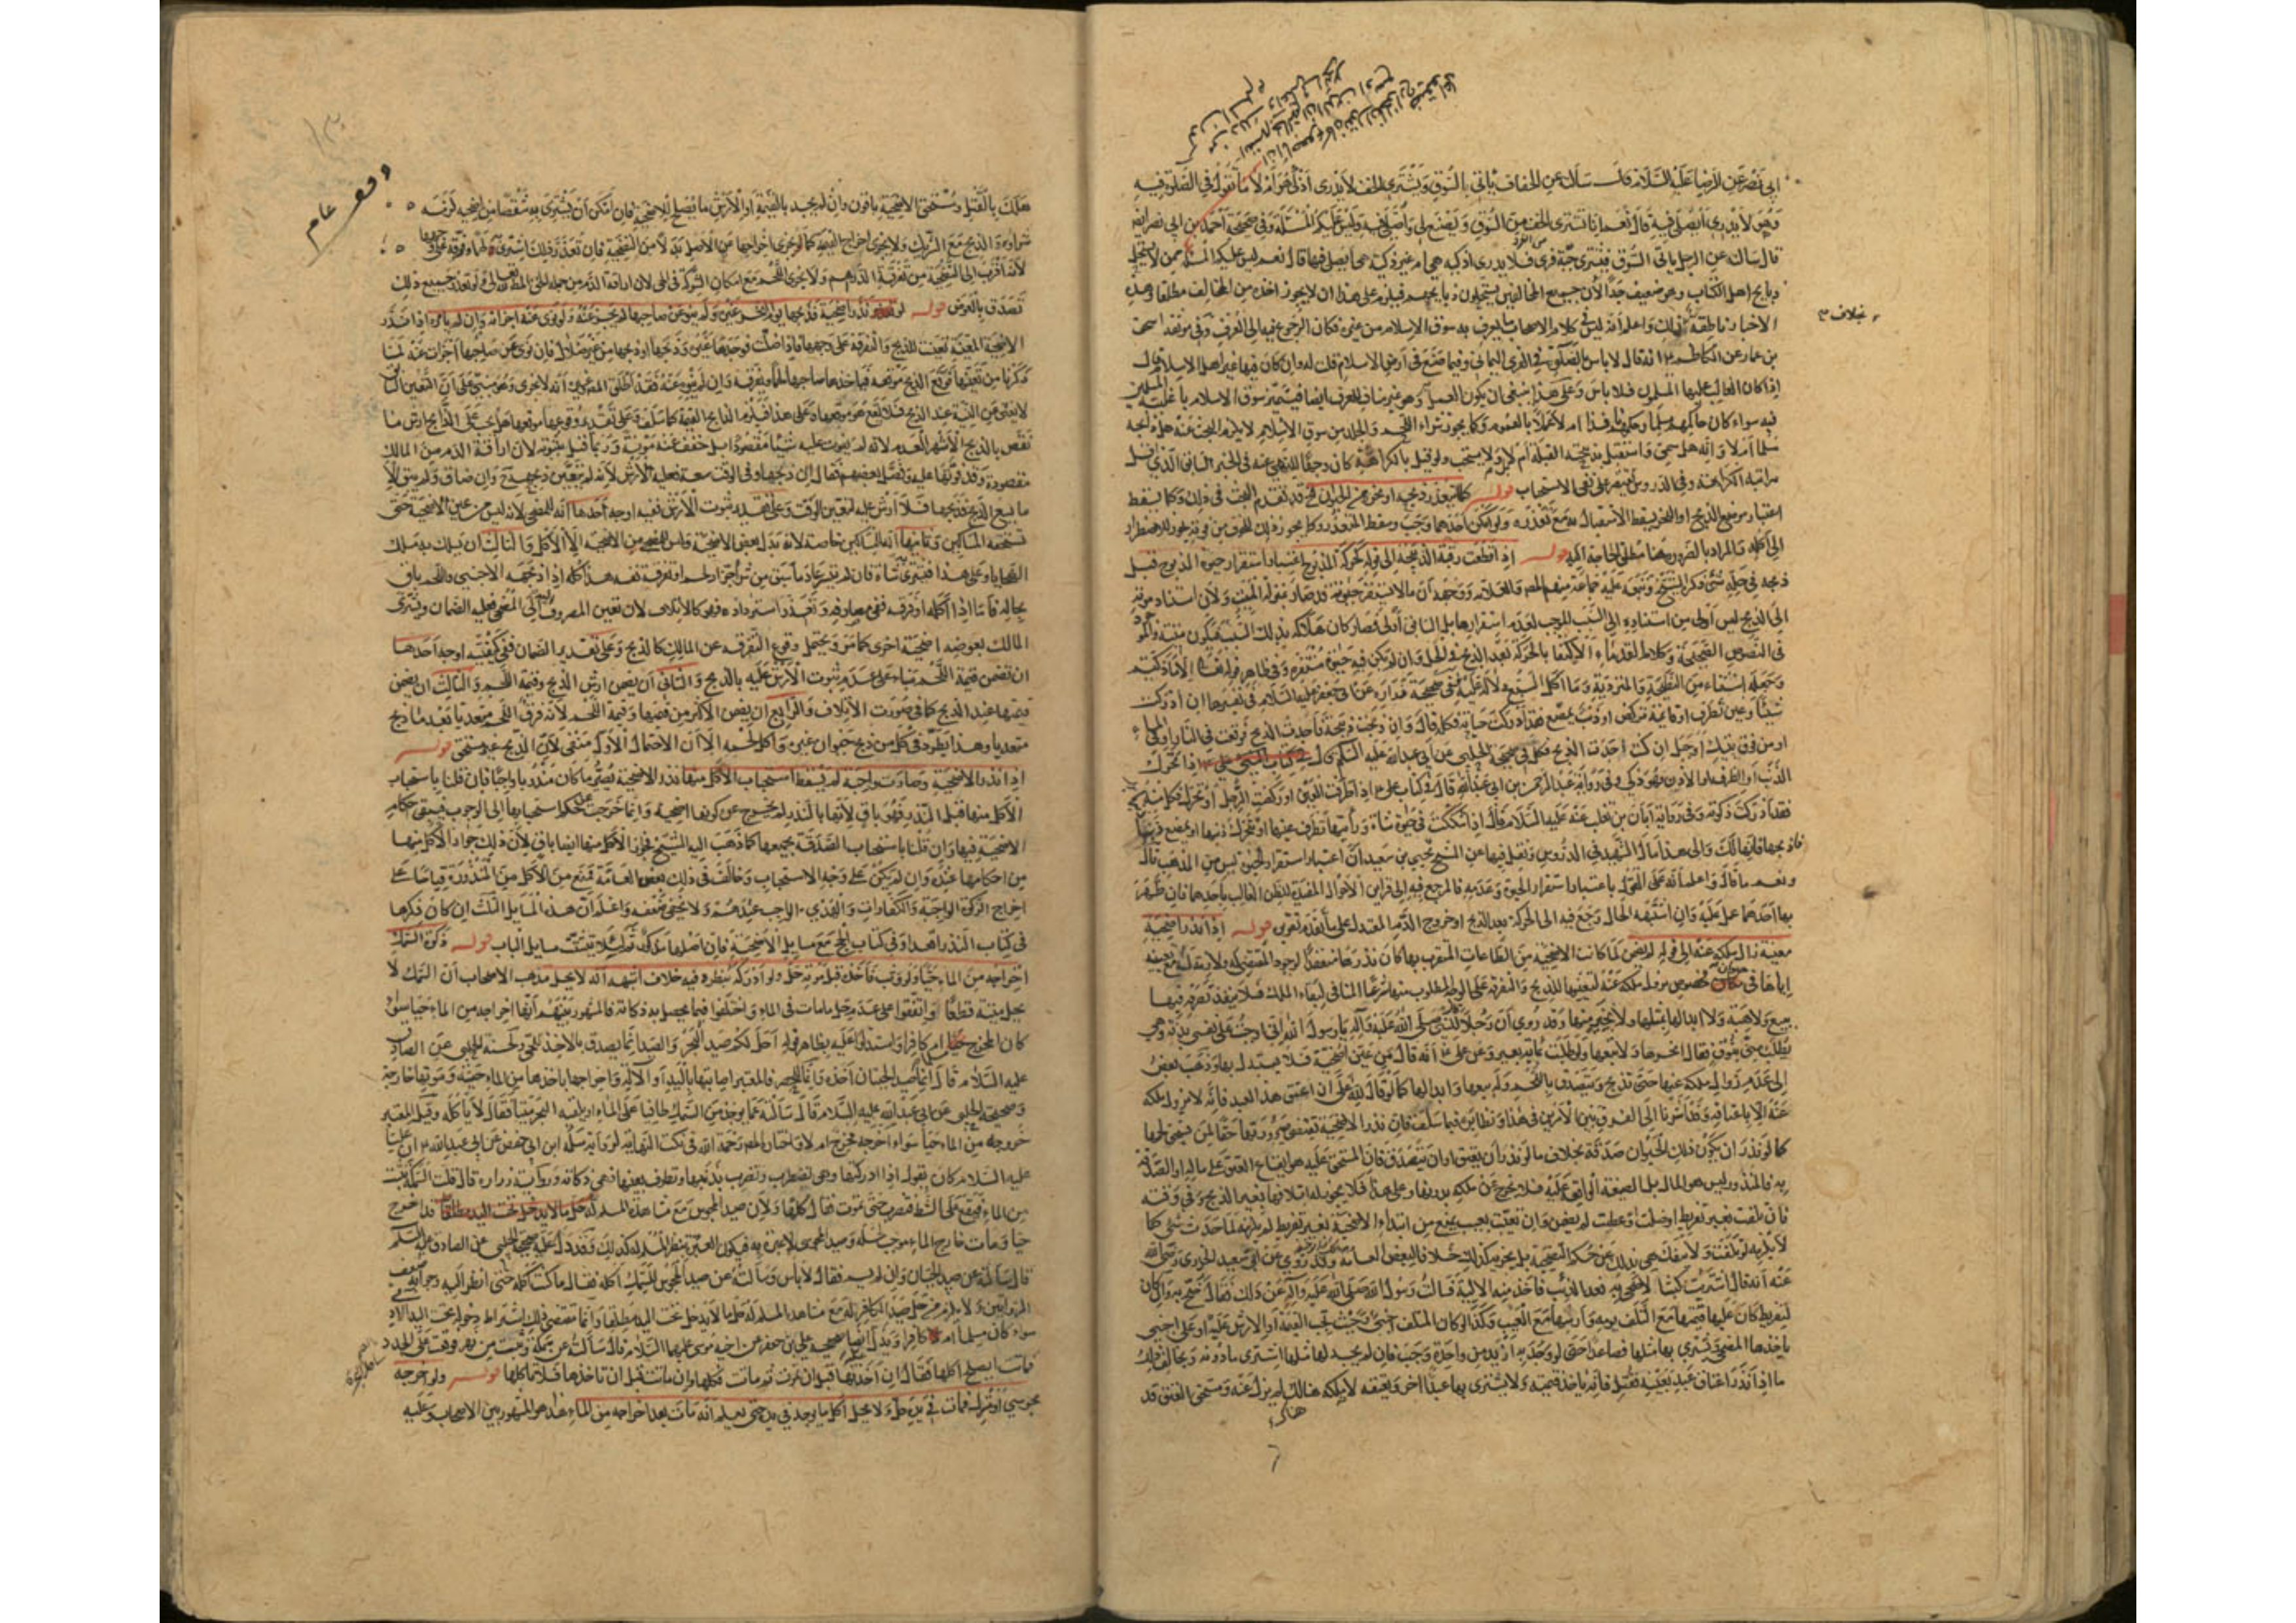 ابي نصر عن الرضا عليه السلام قال سألته عن الخفاف يأتي السوق ويشتري الخف لا يدري اذكي هو ام لا ما تقول في الصلوة فيه
وهو لا يدري ايصلي فيه قال نعم انا نشتري الخف من السوق ويصنع لي واصلي فيه وليس عليكم المسئلة وفي صحيحة احمد بن ابي نصر ايضا
قال سألته عن الرجل يأتي السوق فيشتري جبة فرى فلا يدري اذكيه هي ام غير ذكيه هي ايصلي فيها قال نعم ليس عليكم المسئلة
ذبايح اهل الكتاب وهو ضعيف جدا لأن جميع المخالفين يستحلون ذبايحهم فيلزم على هذا ان لا يجوز اخذه من المخالف مطلقا وهذه
الاخبار ناطقة بخلاف ذلك واعلم انه ليس في كلام الاصحاب ما يعرف به سوق الاسلام من غيره فكان الرجوع فيه الى العرف وفي موثقة اسحق
بن عمار عن الكاظم ع انه قال لا باس بالصلوة في الفرى اليماني وفيما صنع في ارض الاسلام قلت له وان كان فيها غير اهل الاسلام قال
اذا كان الغالب عليها المسلمين فلا باس وعلى هذا ينبغي ان يكون العمل وهو غير مناف للعرف ايضا فيتميز سوق الاسلام باغلبية المسلمين
فيه سواء كان حاكمهم مسلما وحكمهم نافذا ام لا عملا بالعموم وكما يجوز شراء اللحم والجلد من سوق الاسلام لا يلزم البحث عنه هل ذابحه
مسلما ام لا وانه هل سمى واستقبل بذبيحته القبلة ام لا بل ولا يستحب ولو قيل بالكراهة كان وجها للنهي عنه في الخبر السابق الذي اقل
مراتبه الكراهة وفي الدروس اقتصر على نفي الاستحباب قوله كلما يتعذر ذبحه او نحره من الحيوان قد تقدم البحث في ذلك وكما يسقط
اعتبار موضع الذبح او النحر يسقط الاستقبال به مع تعذره ولو امكن احدهما وجب وسقط المتعذر وكما يجوز ذلك للخوف من فوته يجوز للاضطرار
الى اكله والمراد بالضرورة هنا مطلق الحاجة اليه قوله اذا قطعت رقبة الذبيحة الى قوله كحركة المذبوح اعتبار استقرار حيوة المذبوح قبل
ذبحه في حله شئ ذكره الشيخ وتبعه عليه جماعة منهم المصر والعلامة ووجهه ان ما لا يستقر حيوته قد صار بمنزلة الميت ولأن استناد موته
الى الذبح ليس اولى من استناده الى السبب الموجب لعدم استقرارها بل السابق اولى فصار كان هلاكه بذلك السبب فيكون ميتة والموجود
في النصوص الصحيحة وكلام القدماء الاكتفا بالحركة بعد الذبح في الحل وان لم يكن فيه حيوة مستقرة وفي ظاهر قوله تعالى الا ما ذكيتم
وجعله استثناء من النطيحة والمتردية وما اكل السبع دلالة عليه ففي صحيحة زرارة عن ابي جعفر عليه السلام في تفسيرها ان ادركت
شيئا وعين تطرف او قائمة تركض او ذنب يمصع فقد ادركت ذكاته فكله قال وان ذبحت ذبيحة فاجدت الذبح فوقعت في النار او في الماء
او من فوق بيتك او جبل ان كنت اجدت الذبح فكل وفي صحيحة الحلبي عن ابي عبد الله عليه السلم اذا تحرك
الذنب او الطرف او الاذن فهو ذكي وفي رواية عبد الرحمن بن ابي عبد الله قال في كتاب علي ع اذا طرفت العين او ركضت الرجل او تحرك الذنب فكل منه
فقد ادركت ذكوته وفي رواية ابان بن تغلب عنه عليه السلام قال اذا شككت في حيوة شاة ورأيتها تطرف عينها او تحرك ذنبها او تمصع بذنبها
فاذبحها فانها لك والى هذا مال الشهيد في الدروس ونقل فيها عن الشيخ يحيى بن سعيد ان اعتبار استقرار الحيوة ليس من المذهب قال
ونعم ما قال واعلم انه على القول باعتبار استقرار الحيوة وعدمه فالمرجع فيه الى قراين الاحوال المفيدة للظن الغالب باحدهما فان ظهر
بها احدهما عمل عليه وان اشتبه الحال رجع فيه الى الحركة بعد الذبح او خروج الدم المعتدل على ما تقدم تقريره قوله اذا نذر اضحية
معينة زال ملكه عنها الى قوله لم يضمن لما كانت الاضحية من الطاعات المتقرب بها كان نذرها منعقدا لوجود المقتضي له ولا ريب مع تعيينه
اياها في حيوان مخصوص يزول ملكه عنه لتعينها للذبح والتفرقة على الوجه المطلوب منها شرعا المنافي لبقاء الملك فلا ينفذ تصرفه فيها
ببيع ولا هبة ولا ابدالها بمثلها ولا بخير منها وقد روي ان رجلا قال للنبي صلى الله عليه وآله يا رسول الله اني اوجبت على نفسي بدنة وهي
تطلب مني بنوق فقال انحرها ولا تبعها ولو طلبت بمائة بعير وعن علي ع انه قال من عين اضحية فلا يستبدل بها وذهب بعض
الى عدم زوال ملكه عنها حتى تذبح ويتصدق باللحم وله بيعها وابدالها كما لو قال لله علي ان اعتق هذا العبد فانه لا يزول ملكه
عنه الا باعتاقه وقد اشرنا الى الفرق بين الامرين في هذا ونظايره فيما سلف فان نذر الاضحية يقتضي صيرورتها حقا لمن يستحق لحمها
كما لو نذر ان يكون ذلك الحيوان صدقة بخلاف ما لو نذر أن يعتق او ان يتصدق فان المستحق عليه هو ايقاع العتق على ماله او الصدقة
به فالمنذور ليس هو المال بل الصيغة التي توقع عليه فلا يخرج عن ملكه بدونها وعلى هذا فلا يجوز له اتلافها بغير الذبح وفي وقته
فان تلفت بغير تفريط او ضلت او عطبت لم يضمن وان تعيبت بعيب يمنع من ابتداء الاضحية بغير تفريط لم يلزمه لما حدث شئ كما
لا يلزمه لو تلفت ولا تنفك هي بذلك عن حكم الضحية بل يجزيه كذلك خلافا لبعض العامة وقد روي عن ابي سعيد الخدري رضي الله
عنه انه قال اشتريت كبشا لاضحي به فعدا الذئب فاخذ منه الالية فسالت رسول الله صلى الله عليه وآله عن ذلك فقال ضح به وان كان
لتفريط كان عليها قيمتها مع التلف يومه وارشها مع العيب وكذا لو كان المتلف اجنبي وحيث يجب القيمة او الارش عليه او على اجنبي
ياخذها المضحي ويشتري بها مثلها فصاعدا حتى لو وجد به ازيد من واحدة وجب فان لم يجد لها مثلها اشترى ما دونه ويخالف ذلك
ما اذا نذر اعتاق عبد بعينه فقتل فانه يأخذ قيمته ولا يشتري بها عبدا اخر ويعتقه لأن ملكه هنالك لم يزل عنه ومستحق العتق قد
هلك
بخلاف م
وقف عام
هلك بالقتل ومستحق الاضحية باقون وان لم يجد بالقيمة او الارش ما يصلح للاضحية فان امكن ان يشتري به شقصا من اضحية لزمه
شراؤه والذبح مع الشريك ولا يجزي اخراج القيمة كما لو يجزى اخراجها عن الاصل بدلا من التضحية فان تعذر ذلك اشترى به لحما وفرقه على وجهها
لأنه اقرب الى التضحية من تفرقة الدراهم ولا يجزي اللحم مع امكان الشركة في الحي لان اراقة الدم من جملة الحق المطلوب لله تعالى ولو تعذر جميع ذلك
تصدق بالعوض قوله لو نذر اضحية فذبحها يوم النحر غيره ولم ينو عن صاحبها لم يجز عنه ولو نوى عنه اجزاه وان لم يامره اذا نذر
الاضحية المعينة تعينت للذبح والتفرقة على وجهها فاذا ضلت فوجدها غيره وذبحها او ذبحها من غير ضلال فان نوى عن صاحبها اجزأت عنه لما
ذكرنا من تعينها فوقع الذبح موقعه فياخذها صاحبها لحما ويفرقه وان لم ينو عنه فقد اطلق المصر وغيره انه لا يجزي وهو مبني على ان التعيين السابق
لا يغني عن النية عند الذبح فلا تقع هو موقعها وعلى هذا فيلزم الذابح القيمة كما سلف وعلى تقدير وقوعها موقعها هل يجب على الذابح ارش ما
نقص بالذبح الاشهر العدم لانه لم يفوت عليه شيئا مقصودا بل خفف عنه مؤنة وربما قيل بثبوته لان اراقة الدم من المالك
مقصودة وقد فوتها عليه وفصل بعضهم فقال ان ذبحها وفي الوقت سعة فعليه الارش لانه لم يتعين ذبحها ح وان ضاق ولم يبق الا
ما يسع الذبح فذبحها فلا ارش عليه لتعين الوقت وعلى تقدير ثبوت الارش ففيه اوجه احدها انه للمضحي لانه ليس من عين الاضحية حتى
تستحقه المساكين وثانيها انه للمساكين خاصة لانه بدل بعض الاضحية وليس للمضحي من الاضحية الا الاكل والثالث ان يسلك به مسلك
الضحايا وعلى هذا فيشتري به شاة فان لم يتيسر عاد ما سبق من شراء جزء او لحم او تفرقة نفسه هذا كله اذا ذبحه الاجنبي واللحم باق
بحاله فاما اذا اكله او فرقه في مصارفه وتعذر استرداده فهو كالاتلاف لان تعيين المصروف اليه الى المضحي فعليه الضمان ويشتري
المالك بعوضه اضحية اخرى كما مر ويحتمل وقوع التفرقة عن المالك كالذبح وعلى تقدير الضمان ففي كيفيته اوجه احدها
ان يضمن قيمة اللحم بناء على عدم ثبوت الارش عليه بالذبح والثاني ان يضمن ارش الذبح وقيمة اللحم والثالث ان يضمن
قيمتها عند الذبح كما في صورة الاتلاف والرابع ان يضمن الاكثر من قيمتها وقيمة اللحم لانه فرق اللحم متعديا بعد ما ذبح
متعديا وهذا يطرد في كل من ذبح حيوان غيره واكل لحمه الا ان الاحتمال الاول منتفي لأن الذبح غير مستحق قوله
اذا نذر الاضحية وصارت واجبة لم يسقط استحباب الاكل منها نذر الاضحية يصير ما كان مندوبا واجبا فان قلنا باستحباب
الاكل منها قبل النذر فهو باق لأنها بالنذر لم تخرج عن كونها اضحية وانما خرجت عن حكم استحبابها الى الوجوب فيبقى احكام
الاضحية فيها وان قلنا باستحباب الصدقة بجميعها كما ذهب اليه الشيخ فجواز الاكل منها ايضا باق لأن ذلك جواز الاكل منها
من احكامها عنده وان لم يكن على وجه الاستحباب وخالف في ذلك بعض العامة فمنع من الاكل من المنذورة قياسا على
اخراج الزكوة الواجبة والكفارات والفدي الواجب عندهم ولا يخفى ضعفه واعلم ان هذه المسايل الثلث ان كان ذكرها
في كتاب النذر اقعد او في كتاب الحج مع مسايل الاضحية فان اصلها مذكور ثم كيلا تتشتت مسايل الباب قوله ذكوة السمك
اخراجه من الماء حيا ولو وثب فاخذه قبل موته حل ولو ادركه بنظره فيه خلاف اشبهه انه لا يحل مذهب الاصحاب ان السمك لا
يحل ميتة قطعا واتفقوا على عدم حل ما مات في الماء واختلفوا فيما يحصل به ذكاته فالمشهور بينهم انها اخراجه من الماء حيا سواء
كان المخرج مسلما ام كافرا واستدلوا عليه بظاهر قوله احل لكم صيد البحر والصيد انما يصدق بالاخذ لحسنة الحلبي عن الصادق
عليه السلام قال انما صيد الحيتان اخذه وانما للحصر فالمعتبر اصابتها باليد او الآلة واخراجها باخذها من الماء حية وموتها خارجة
وصحيحة الحلبي عن ابي عبد الله عليه السلام قال سألته عما يوجد من السمك طافيا على الماء او يلقيه البحر ميتا فقال لا يأكله وقيل المعتبر
خروجه من الماء حيا سواء اخرجه مخرج ام لا واختاره المصر رحمه الله في نكت النهاية لرواية سلمة ابن ابي حفص عن ابي عبد الله ع ان عليا
عليه السلام كان يقول اذا ادركتها وهي تضطرب وتضرب بذنبها وتطرف بعينها فهي ذكاته ورواية زرارة قال قلت السمكة تثب
من الماء فتقع على الشط فتضطرب حتى تموت فقال كلها ولان صيد المجوسي مع مشاهدة المسلم قد اخرج
حيا ومات خارج الماء موجب لحله وصيد المجوسي لا عبرة به فيكون العبرة بنظر المسلم له كذلك وقد دل عليه صحيح الحلبي عن الصادق عليه السلم
قال سألته عن صيد الحيتان وان لم يسم فقال لا بأس وسألته عن صيد المجوس للسمك اكله فقال ما كنت آكله حتى انظر اليه وجوابه ضعف
الروايتين ولا يلزم من حل صيد الكافر له مع مشاهدة المسلم له حل ما لا يدخل تحت اليد مطلقا وانما مقتضى ذلك اشتراط دخوله تحت اليد الا
سواء كان مسلما ام كافرا ويدل عليه ايضا صحيحة علي بن جعفر عن اخيه موسى عليهما السلام قال سألته عن سمكة وثبت من نهر فوقعت على الجدد
فماتت ايصلح اكلها فقال ان اخذتها قبل ان تموت ثم ماتت فكلها وان ماتت قبل ان تاخذها فلا تأكلها قوله ولو اخرجه
مجوسي او مشرك فمات في يده حل ولا يحل اكل ما يوجد في يده حتى يعلم انه مات بعد اخراجه من الماء هذا هو المشهور بين الاصحاب وعليه